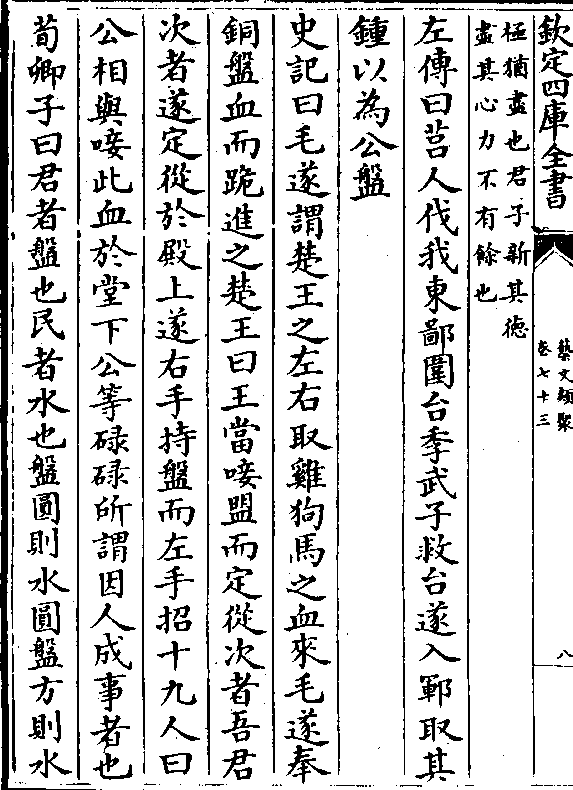 欽定四庫全書
藝文類聚
卷七十三
八
極猶盡也君子新其徳
盡其心力不有餘也
左傳曰莒人伐我東鄙圍台季武子救台遂入鄆取其
鍾以為公盤
史記曰毛遂謂楚王之左右取雞狗馬之血來毛遂奉
銅盤血而跪進之楚王曰王當唼盟而定從次者吾君
次者遂定從於殿上遂右手持盤而左手招十九人曰
公相與唼此血於堂下公等碌碌所謂因人成事者也
荀卿子曰君者盤也民者水也盤圓則水圓盤方則水